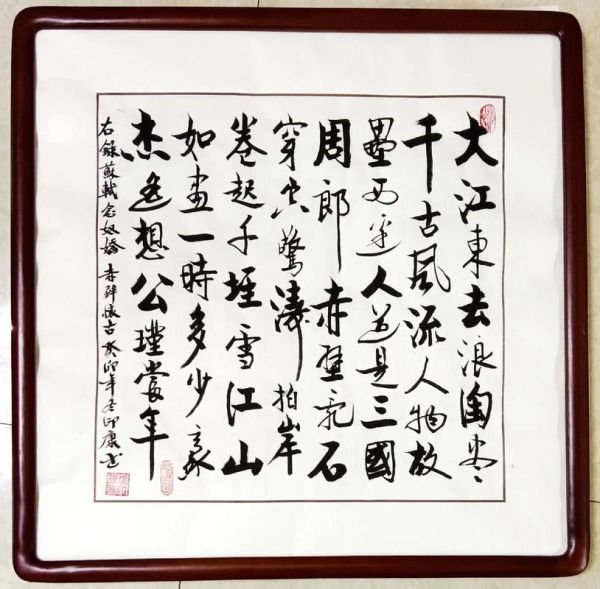 大江東去浪淘尽
千古風流人物故
壘西邊人道是三國
周郎赤壁乱石
穿空驚濤拍岸
卷起千堆雪江山
如畫一時多少豪
杰遙想公瑾當年
右錄蘇軾念奴嬌 赤壁懷古 癸卯年冬印康书